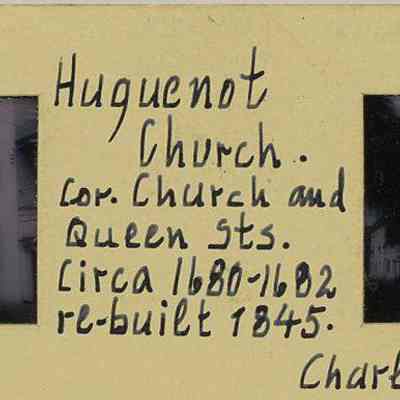 Huguenot
Church.
Cor. Church and
Queen Sts.
Circa 1680-1682
re-built 1845.